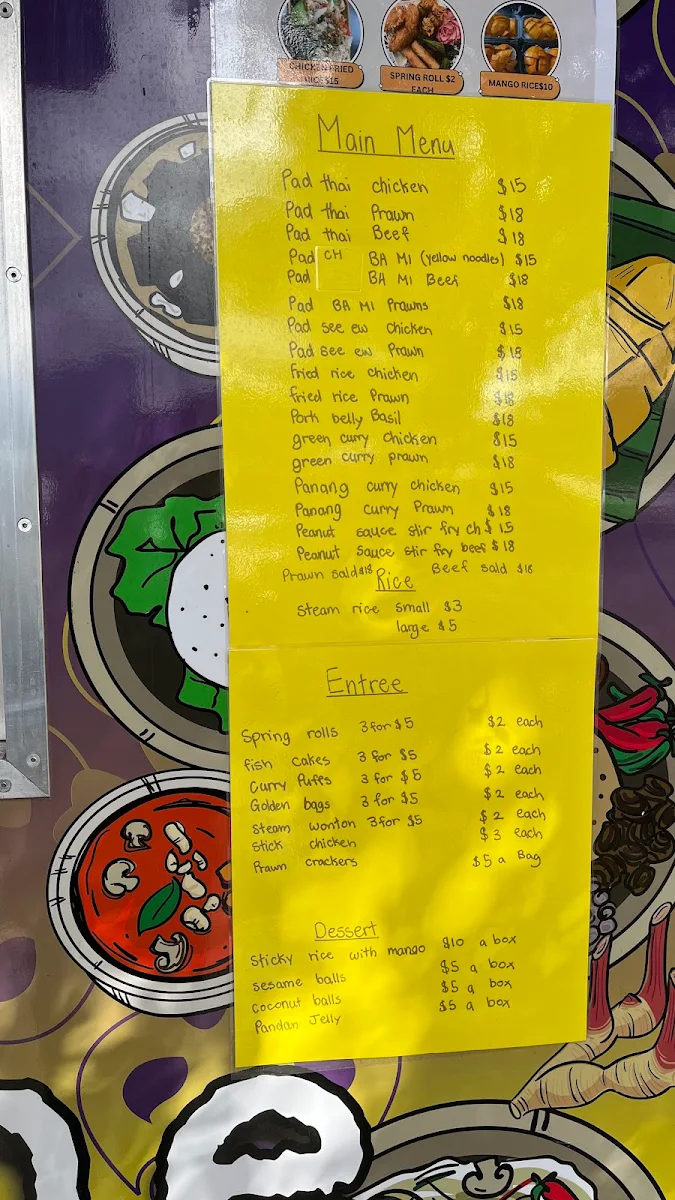 CHICKEN FRIED
RICE $15
SPRING ROLL $2
EACH
MANGO RICE$10
Main Menu
Pad thai chicken $15
Pad thai Prawn $18
Pad thai Beef $18
Pad CH BA MI (yellow noodles) $15
Pad BA MI Beef $18
Pad BA MI Prawns $18
Pad see ew chicken $15
Pad see ew Prawn $18
fried rice chicken $15
fried rice Prawn $18
Pork belly Basil $18
green curry chicken $15
green curry prawn $18
Panang curry chicken $15
Panang curry Prawn $18
Peanut sauce stir fry ch $15
Peanut sauce stir fry beef $18
Prawn sald $18 Beef sald $16
Rice
Steam rice small $3
large $5
Entree
Spring rolls 3 for $5 $2 each
fish cakes 3 for $5 $2 each
Curry Puffs 3 for $5 $2 each
Golden bags 3 for $5 $2 each
Steam wonton 3 for $5 $2 each
Stick chicken $3 each
Prawn crackers $5 a Bag
Dessert
Sticky rice with mango $10 a box
sesame balls $5 a box
coconut balls $5 a box
Pandan Jelly $5 a box